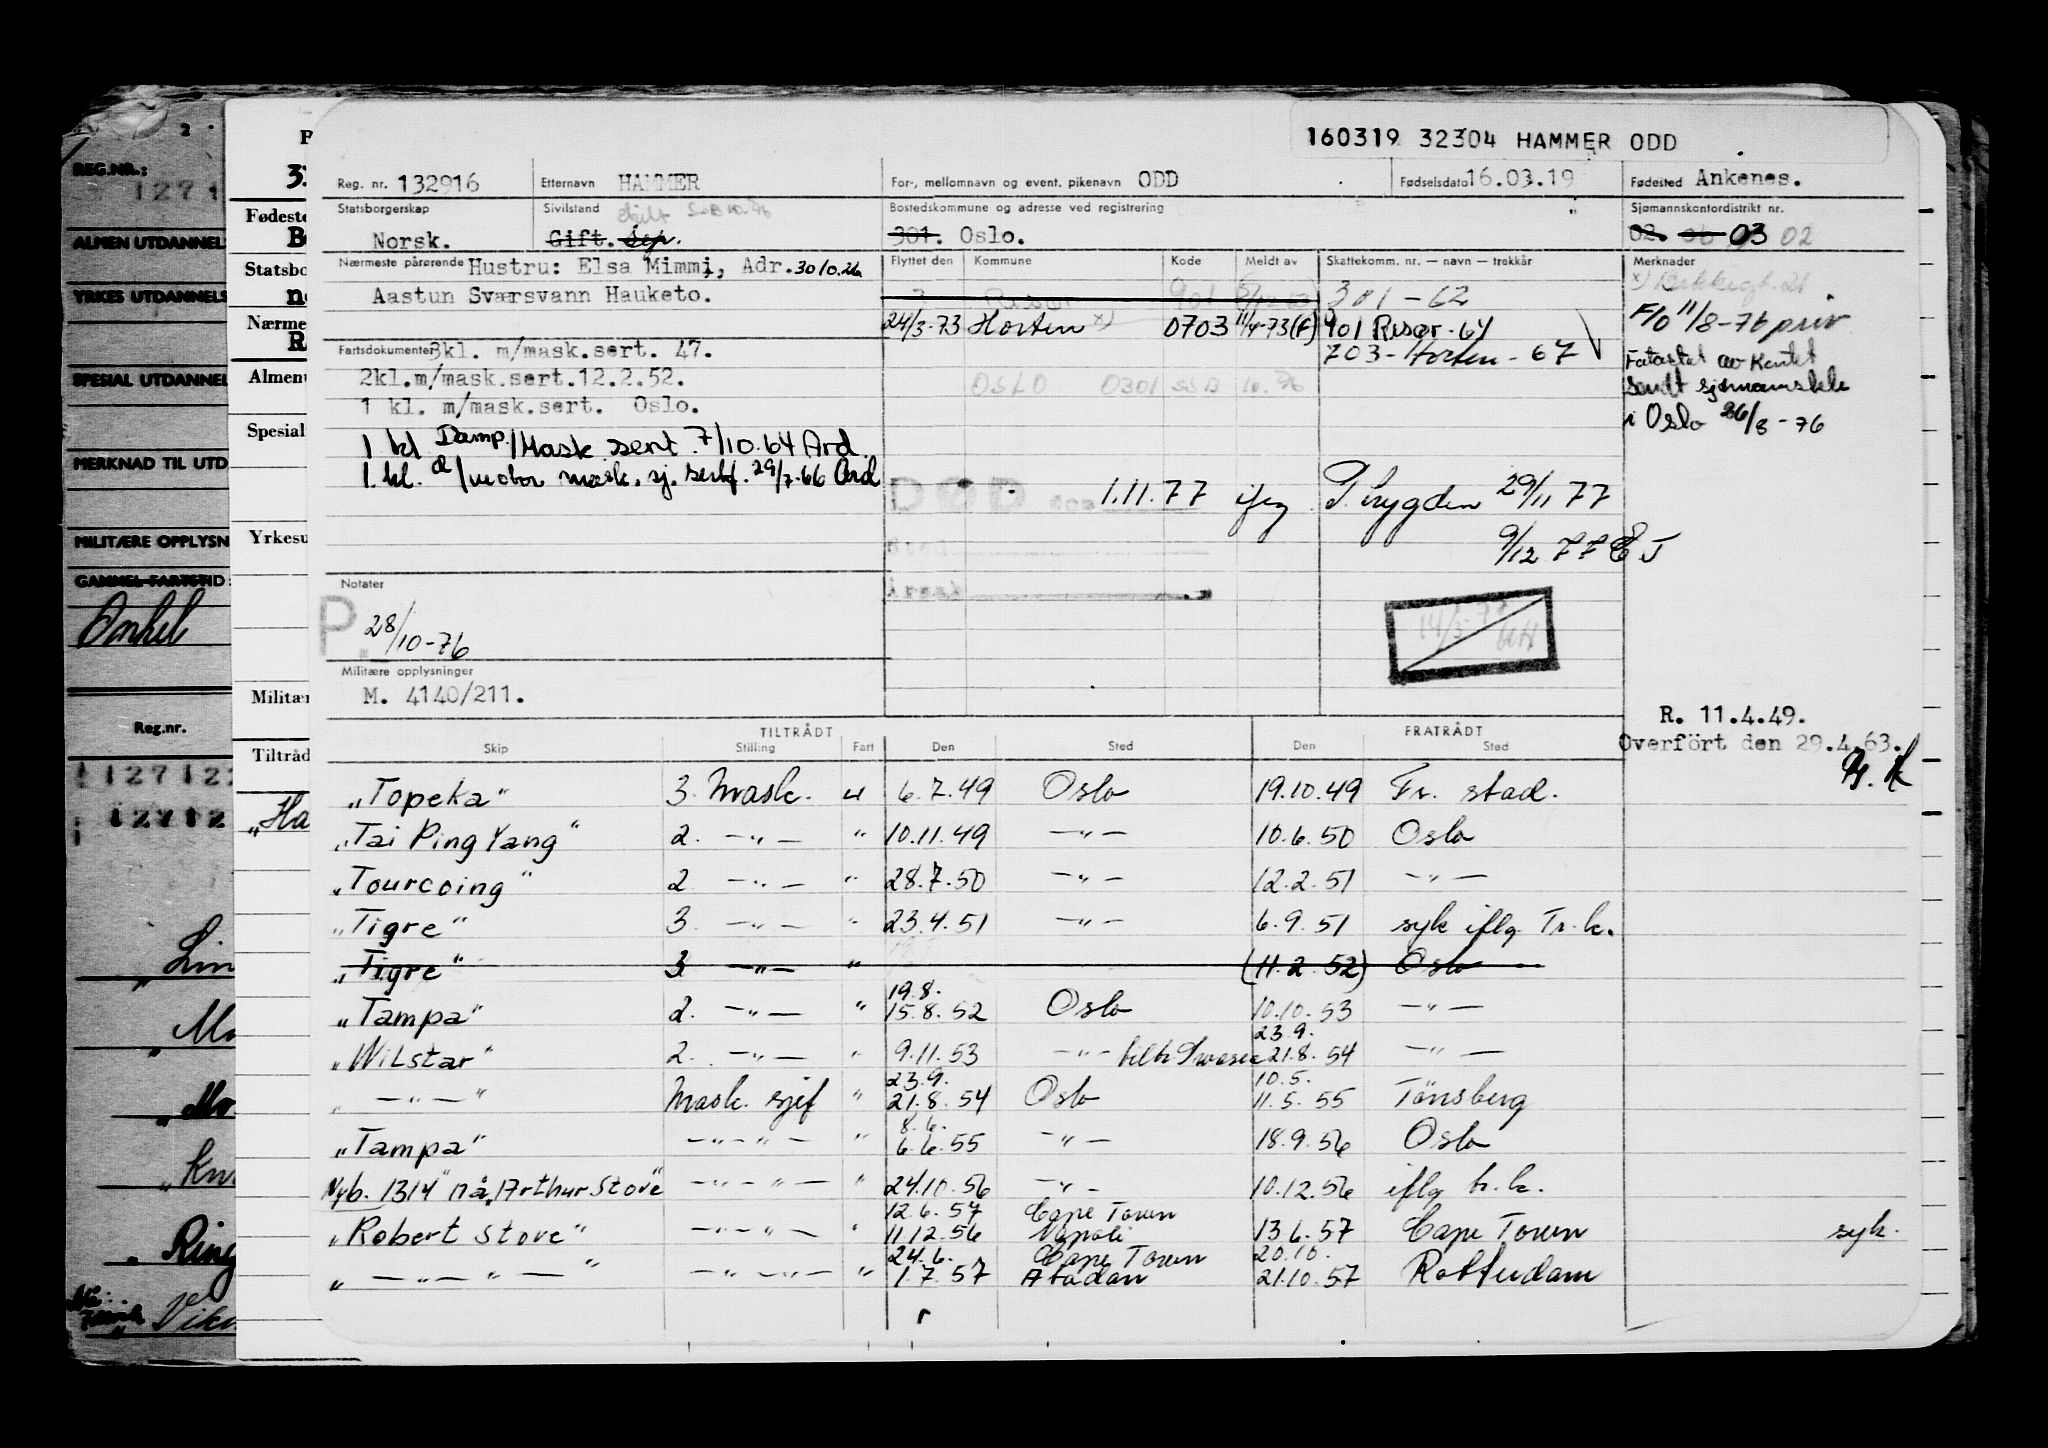 160319 32304 HAMMER ODD
Reg. nr. 132916 Etternavn HAMMER For-, mellomnavn og event. pikenavn ODD Fødselsdato 16.03.19 Fødested Ankenes.
Statsborgerskap Sivilstand Bostedskommune og adresse ved registrering Sjømannskontordistrikt nr.
Norsk. Gift. Sep. 301. Oslo. 02. 06 03 02
Nærmeste pårørende Hustru: Elsa Mimmi, Adr. 30/10.26 Flyttet den Kommune Kode Meldt av Skattekomm. nr. — navn — trekkår Merknader
Aastun Sværsvann Hauketo. 301 - 62
24/3-73 Horten x) 0703 11/4-73 (F) 901 Risør - 64 F/O 11/8-76 priv
Fartsdokumenter 3kl. m/mask.sert. 47. 703 - Horten - 67
2kl.m/mask.sert.12.2.52. OSLO 0301 SSB 10. 76
1 kl. m/mask.sert. Oslo. i Oslo 26/8-76
1 kl Damp/Mask sert. 7/10.64 Ard.
1. kl. /motor mask. sj. sertf. 29/7-66 Ard
DØD 1.11.77 iføg P. trygden 29/11 77
9/12 77 EJ
Notater
P. 28/10-76
Militære opplysninger
M. 4140/211.
R. 11.4.49.
Overfört den 29.4.63.
TILTRÅDT FRATRÅDT
Skip Stilling Fart Den Sted Den Sted
"Topeka" 3. Mask. u 6.7.49 Oslo 19.10.49 Fr. stad.
"Tai Ping Yang" 2. —"— " 10.11.49 —"— 10.6.50 Oslo
"Tourcoing" 2 —"— " 28.7.50 —"— 12.2.51 —"—
"Tigre" 3. —"— " 23.4.51 —"— 6.9.51 syk iflg. Tr.k.
"Tigre" 3. —"— " (11.2.52) Oslo
19.8.
"Tampa" 2. —"— " 15.8.52 Oslo 10.10.53 —"—
23.9.
"Wilstar" 2. —"— " 9.11.53 —"— 21.8.54 —"—
23.9. 10.5.
" —"— Mask. sjef " 21.8.54 Oslo 11.5.55 Tönsberg
8.6.
"Tampa" —"—"— " 6.6.55 —"— 18.9.56 Oslo
Nyb. 1314" nå "Arthur Stove" —"—"— " 24.10.56 —"— 10.12.56 iflg tr.k.
12.6.57 Cape Town
"Robert Stove" —"—"— " 11.12.56 Napoli 13.6.57 Cape Town syk.
24.6. Cape Town 20.10.
" —"—"— " —"—"— " 1.7.57 Abadan 21.10.57 Rotterdam
REG.NR.:
1271
ALMEN UTDANNEL
YRKES UTDANNELS
SPESIAL UTDANNEL
MERKNAD TIL UTD
MILITÆRE OPPLYSN
GAMMEL FARTSTID
Onkel
Reg.nr.
127122
12712
"Lin
"Ma
"Mo
"Knu
"Ring
Vik
Fødeste
Statsbo
Nærme
Almenu
Spesial
Yrkesu
Militær
Tiltråd
"Ha